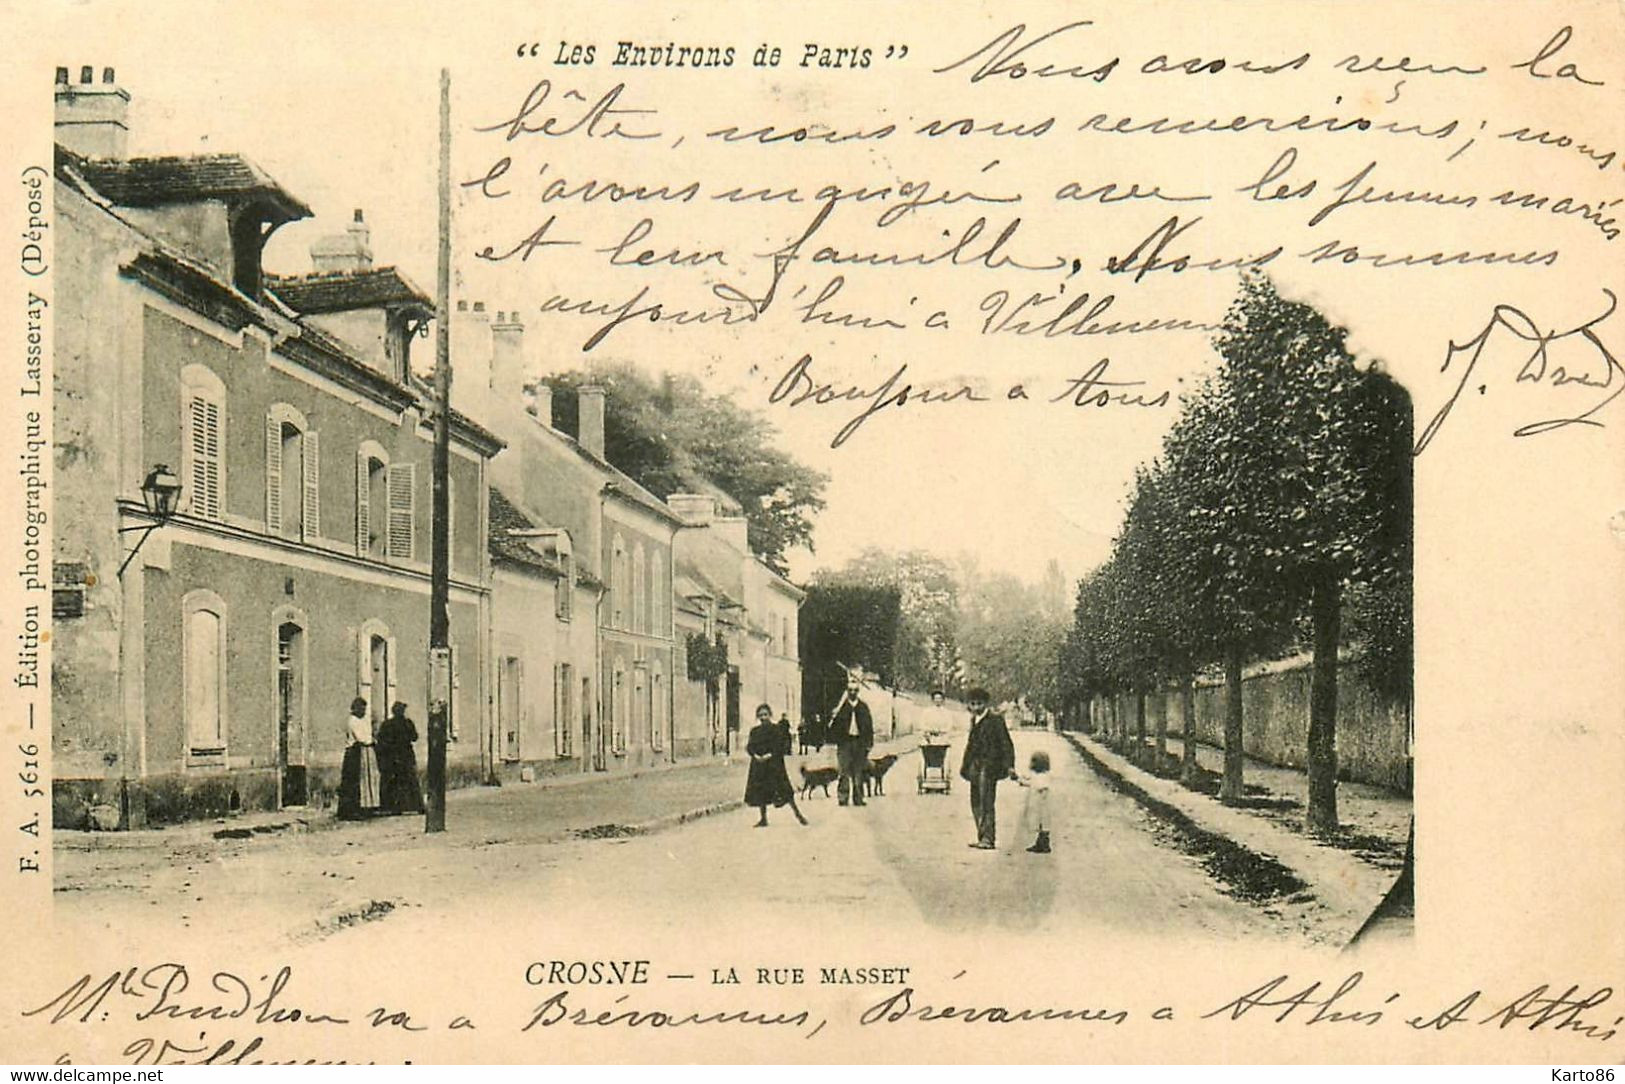 “ Les Environs de Paris ”
Nous avons reçu la
bête, nous vous remercions; nous
l'avons mangée avec les jeunes mariés
et leur famille. Nous sommes
aujourd'hui a Villeneuve
Bonjour a tous
J.
F. A. 5616 — Édition photographique Lasseray (Déposé)
CROSNE — LA RUE MASSET
Mlle Prudhon va a Brévannes, Brévannes a Athis et Athis
a Villeneuve.
www.delcampe.net
Karto86